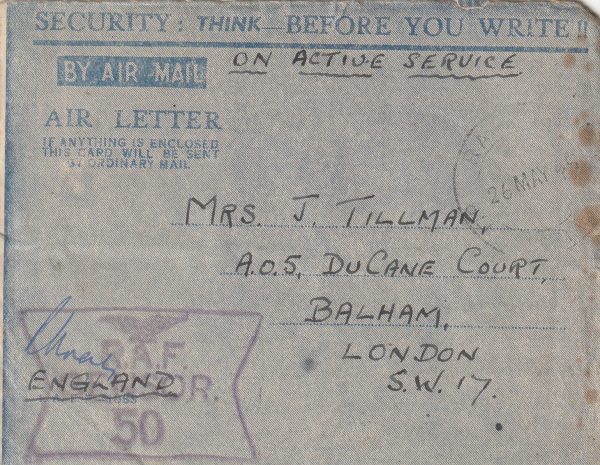 SECURITY: THINK—BEFORE YOU WRITE!!
BY AIR MAIL
ON ACTIVE SERVICE
AIR LETTER
IF ANYTHING IS ENCLOSED
THIS CARD WILL BE SENT
BY ORDINARY MAIL
26 MAY
MRS. J. TILLMAN,
A.O.5, DUCANE COURT,
BALHAM,
LONDON
S.W.17.
R.A.F.
ENGLAND
50